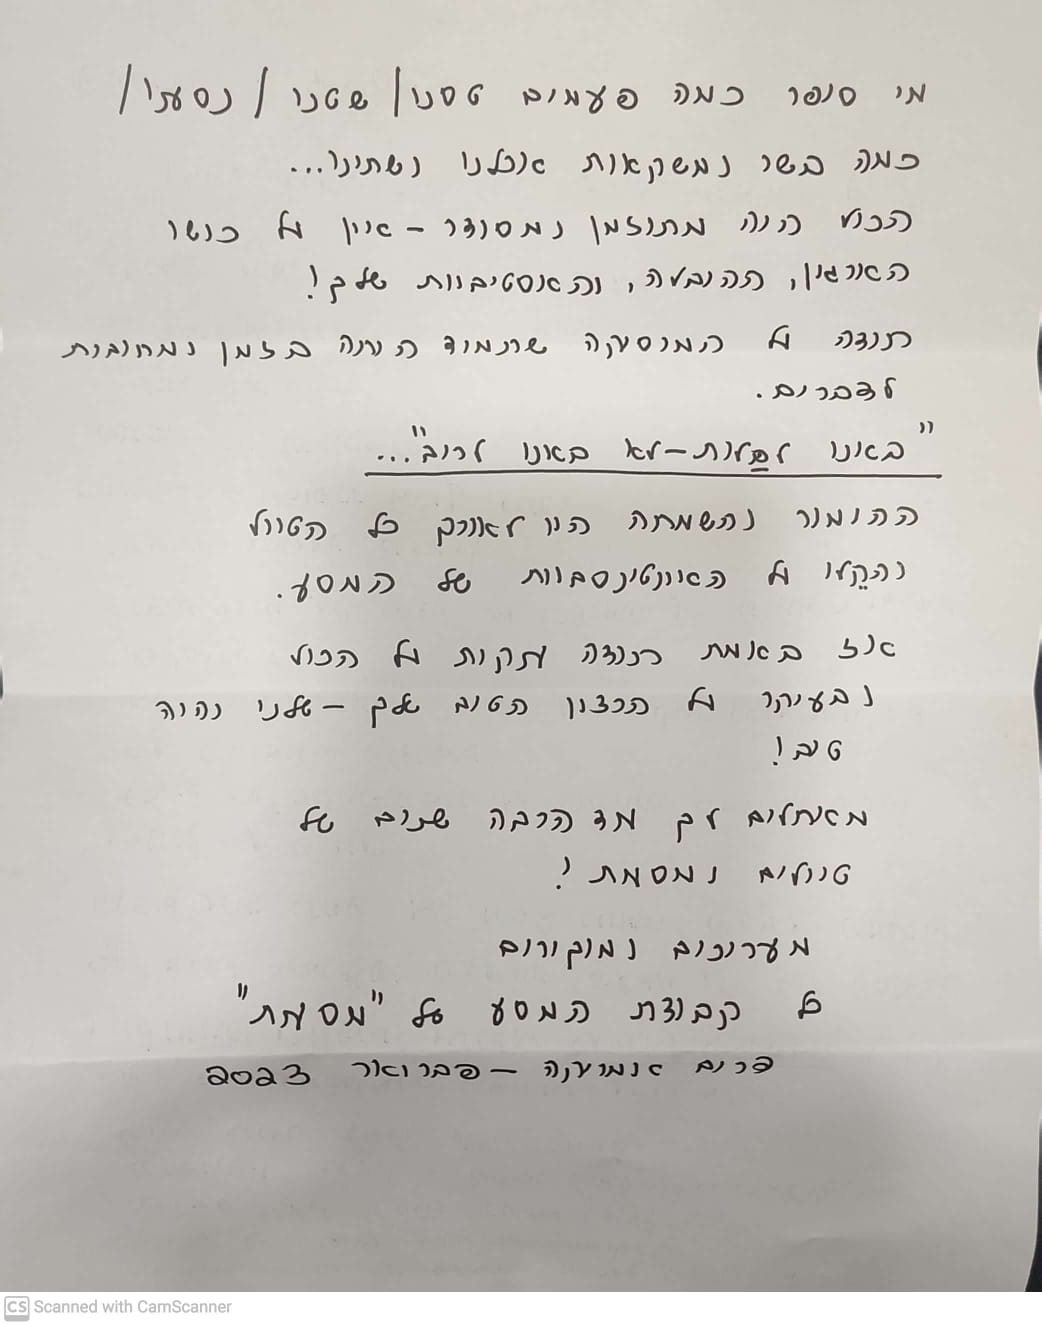 מי סופר כמה פעמים טסנו/ שטנו / נסענו/
כמה בשר ומשקאות אכלנו ושתינו...
הכול היה מתוזמן ומסודר – אין על כושר
הארגון, ההובלה, והאסטיביות שלך!
תודה על המוסיקה שתמיד היתה בזמן ומחוברת
לדברים.
"באנו לבלות – לא באנו לריב"...
ההומור והשמחה היו לאורך כל הטיול
והקלו על האינטנסביות של המסע.
אז באמת תודה ענקית על הכול
ובעיקר על הרצון הטוב שלך – שלנו יהיה
טוב!
מאחלים לך עוד הרבה שנים של
טיולים ומסעות!
מעריכים ומוקירים
כל קבוצת המסע של "מסעות"
דרום אמריקה – פברואר 2023
CS Scanned with CamScanner